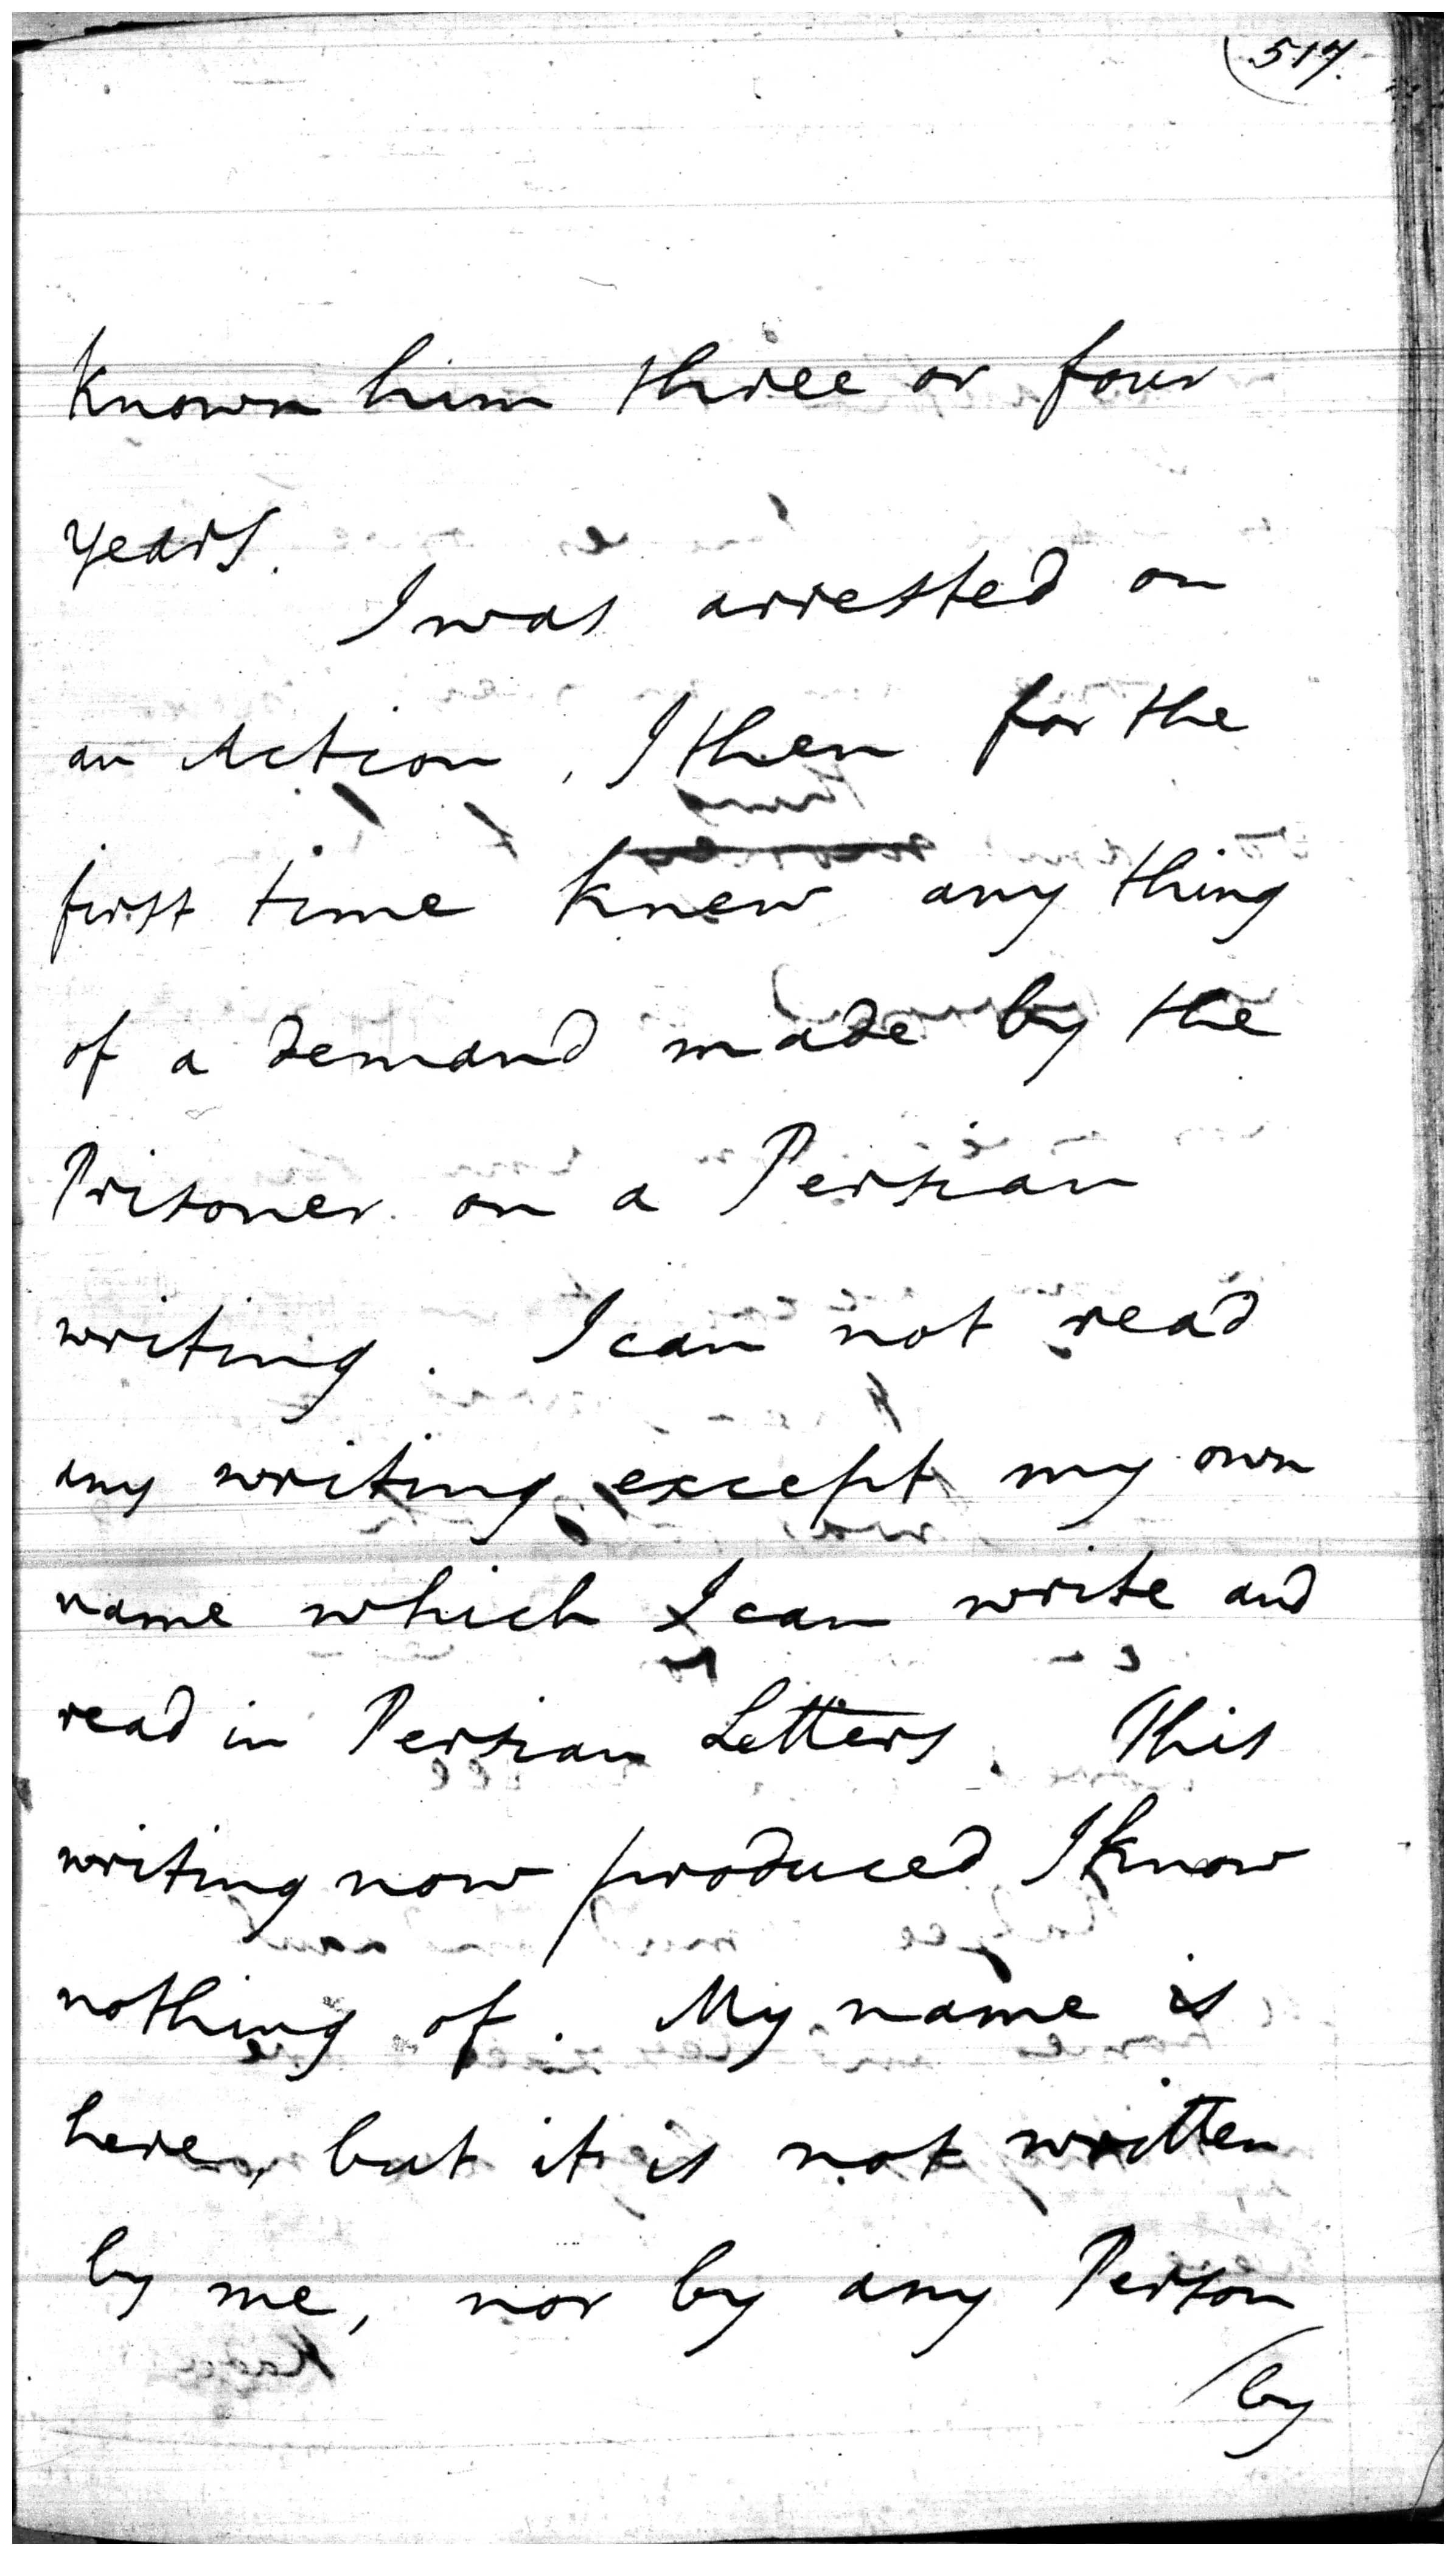 517.
Known him three or four
years.
I was arrested on
an Action, I then for the
first time knew any thing
of a demand made by the
Prisoner on a Persian
writing. I can not read
any writing except my own
name which I can write and
read in Persian Letters. This
writing now produced I know
nothing of. My name is
here, but it is not written
by me, nor by any Person
by